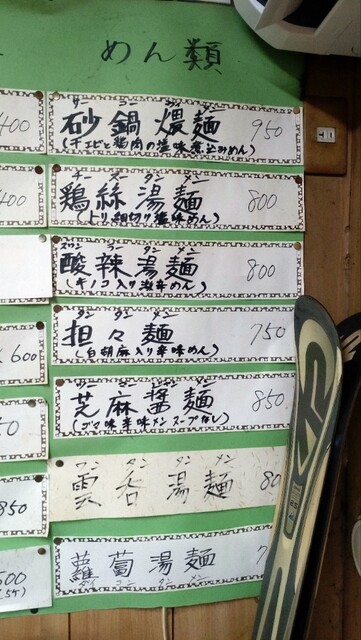 めん類
砂鍋煨麺 950
(チエビと鶏肉の塩味煮込みめん)
400
鶏絲湯麺 800
(とり細切り塩味めん)
400
酸辣湯麺 800
(キノコ入り激辛めん)
担々麺 750
(白胡麻入り辛味めん)
600
芝麻醤麺 850
(ゴマ味辛味メン スープなし)
50
雲呑湯麺 80
850
蘿蔔湯麺 7
500